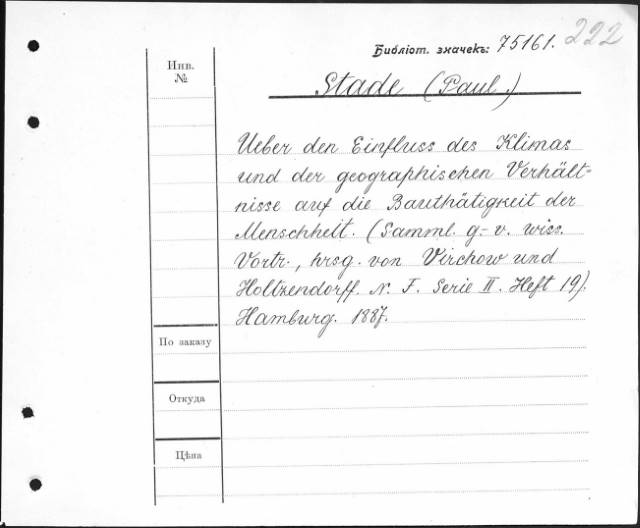 Библіот. значекъ: 75161. 222
Инв.
№
Stade (Paul.)
Ueber den Einfluss des Klimas
und der geographischen Verhält-
nisse auf die Bauthätigkeit der
Menschheit. (Samml. g.-v. wiss.
Vortr., hrsg. von Virchow und
Holtzendorff. N. F. Serie II. Heft 19).
Hamburg. 1887.
По заказу
Откуда
Цѣна